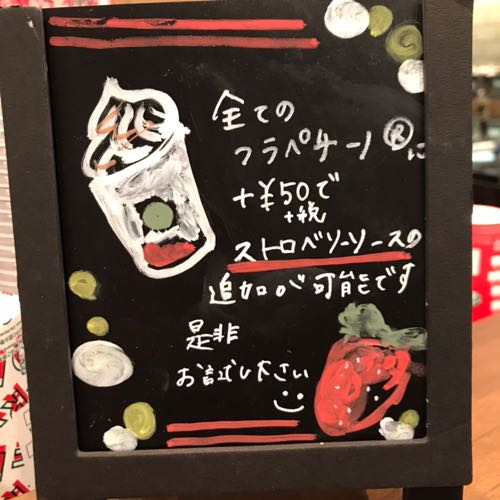 全ての
フラペチーノ®に
+¥50で
+税
ストロベリーソースの
追加が可能です
是非
お試し下さい